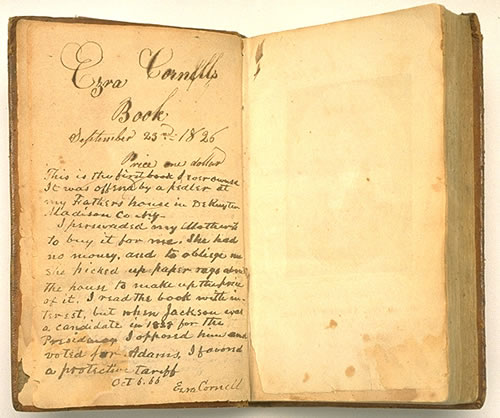 Ezra Cornells
Book
September 23rd 1826
Price one dollar
This is the first book I ever owned
It was offered by a pedler at
my Fathers house in DeRuyter
Madison Co NY.
I persuaded my Mother
to buy it for me. She had
no money, and to oblige me
she picked up paper rags about
the house to make up the price
of it. I read the book with in-
terest, but when Jackson was
a candidate in 1828 for the
Presidency I opposed him and
voted for Adams, I favored
a protective tariff
Oct 6. 65
Ezra Cornell